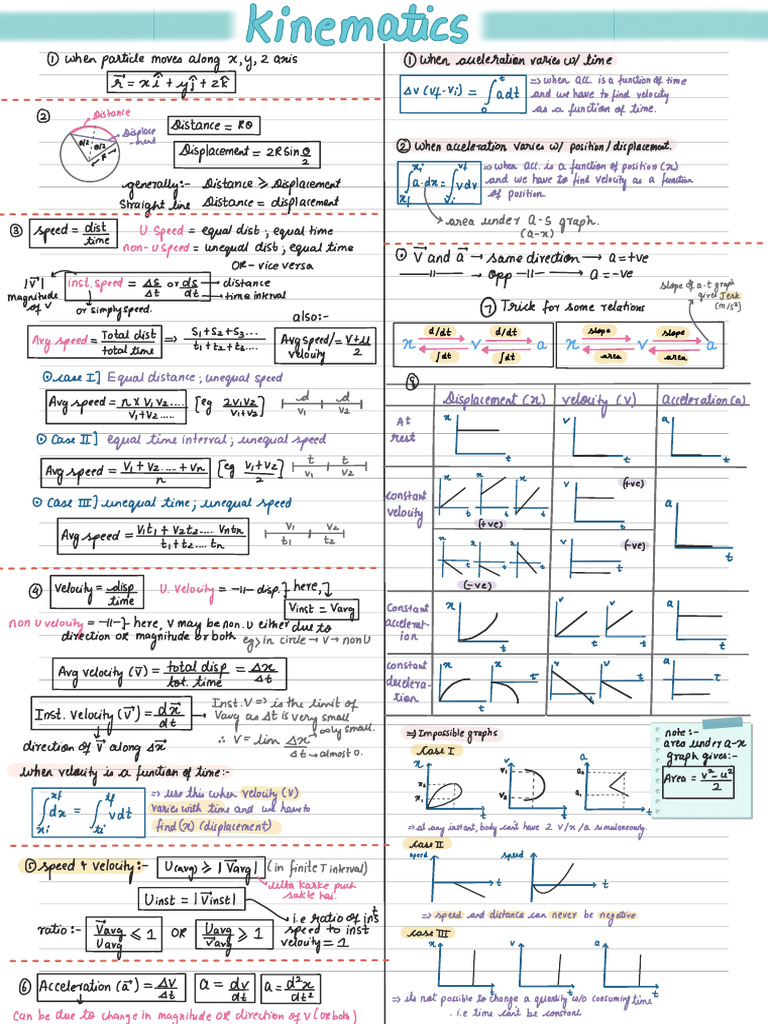 Kinematics
① when particle moves along x, y, z axis
r⃗ = xî + yĵ + zk̂
②
Distance
Displace-ment
θ/2 θ/2
R
Distance = Rθ
Displacement = 2R sin θ/2
generally:- Distance ⩾ Displacement
Straight line Distance = displacement
③ speed = dist/time
U. Speed = equal dist ; equal time
non-U speed = unequal dist ; equal time
OR - vice versa
|v⃗| magnitude of v
inst. speed = Δs/Δt or ds/dt
→ distance
→ time interval
or simply speed.
also:-
Avg speed = Total dist/total time ⇒ S₁+S₂+S₃.../t₁+t₂+t₃...
Avg speed/velocity = v+u/2
⊙ case I] Equal distance ; unequal speed
Avg speed = n × v₁v₂...../v₁+v₂..... [eg 2v₁v₂/v₁+v₂]
d d
v₁ v₂
⊙ Case II] equal time interval ; unequal speed
Avg speed = v₁+v₂....+vn/n [eg v₁+v₂/2]
t t
v₁ v₂
⊙ Case III] unequal time ; unequal speed
Avg speed = v₁t₁+v₂t₂.... vntn/t₁+t₂.... tn
v₁ v₂
t₁ t₂
④ velocity = disp/time
U. velocity = -11- disp. } here,
Vinst = Vavg
non U velocity = -11-} here, v may be non. U either due to
direction or magnitude or both
eg> in circle → v → non U
Avg velocity (v̄) = total disp/tot. time = Δx/Δt
Inst. velocity (v⃗) = dx⃗/dt
Inst. v ⇒ is the limit of
Vavg as Δt is very small
∴ v = lim Δx/Δt
only small.
almost 0.
direction of v⃗ along Δx⃗
when velocity is a function of time:-
∫xi xf dx = ∫ti tf vdt
⇒ use this when velocity (v)
varies with time and we have to
find (x) (displacement)
⑤ speed & velocity:- U(avg) ⩾ |V⃗avg| (in finite T interval)
Ulta karke puch
sakte hai.
Uinst = |V⃗inst|
ratio:- V⃗avg/Uavg ⩽ 1 OR Uavg/V⃗avg ⩾ 1
i.e ratio of inst
speed to inst
velocity = 1
⑥ Acceleration (a⃗) = Δv/Δt a = dv/dt a = d²x/dt²
Can be due to change in magnitude OR direction of v (or both)
① when acceleration varies w/ time
Δv (vf-vi) = ∫0 t a dt
⇒ when acc. is a function of time
and we have to find velocity
as a function of time.
② when acceleration varies w/ position/displacement.
∫xf xi a·dx = ∫vi vf vdv
⇒ when acc. is a function of position (x)
and we have to find velocity as a function
of position.
area under a-s graph.
(a-x)
⊙ v⃗ and a⃗ → same direction → a=+ve
-11- → opp -11- → a=-ve
⑦ Trick for some relations
slope of a-t graph
gives Jerk
(m/s³)
d/dt d/dt
x v a
∫dt ∫dt
slope slope
x v a
area area
⑧
Displacement (x) velocity (v) Acceleration (a)
At
rest
x t
v t
a t
constant
velocity
x x x
t t t
(+ve)
v t (+ve)
a t
x x x
t t t
(-ve)
v t (-ve)
Constant
accelerat-
ion
x t
v v
t t
a t
constant
decelera-
tion
x x
t t
v v
t t
a t
⇒ Impossible graphs
Case I
x x₂ x₁ t
v v₁ v₂ t
a a₂ a₁ t
⇒ at any instant, body can't have 2 v/x/a simultaneously.
note:-
area under a-x
graph gives:-
Area = v²-u²/2
Case II
speed t
speed t
⇒ speed and distance can never be negative
Case III
x t
v t
a t
⇒ its not possible to change a quantity w/o consuming time
. i.e time can't be constant.